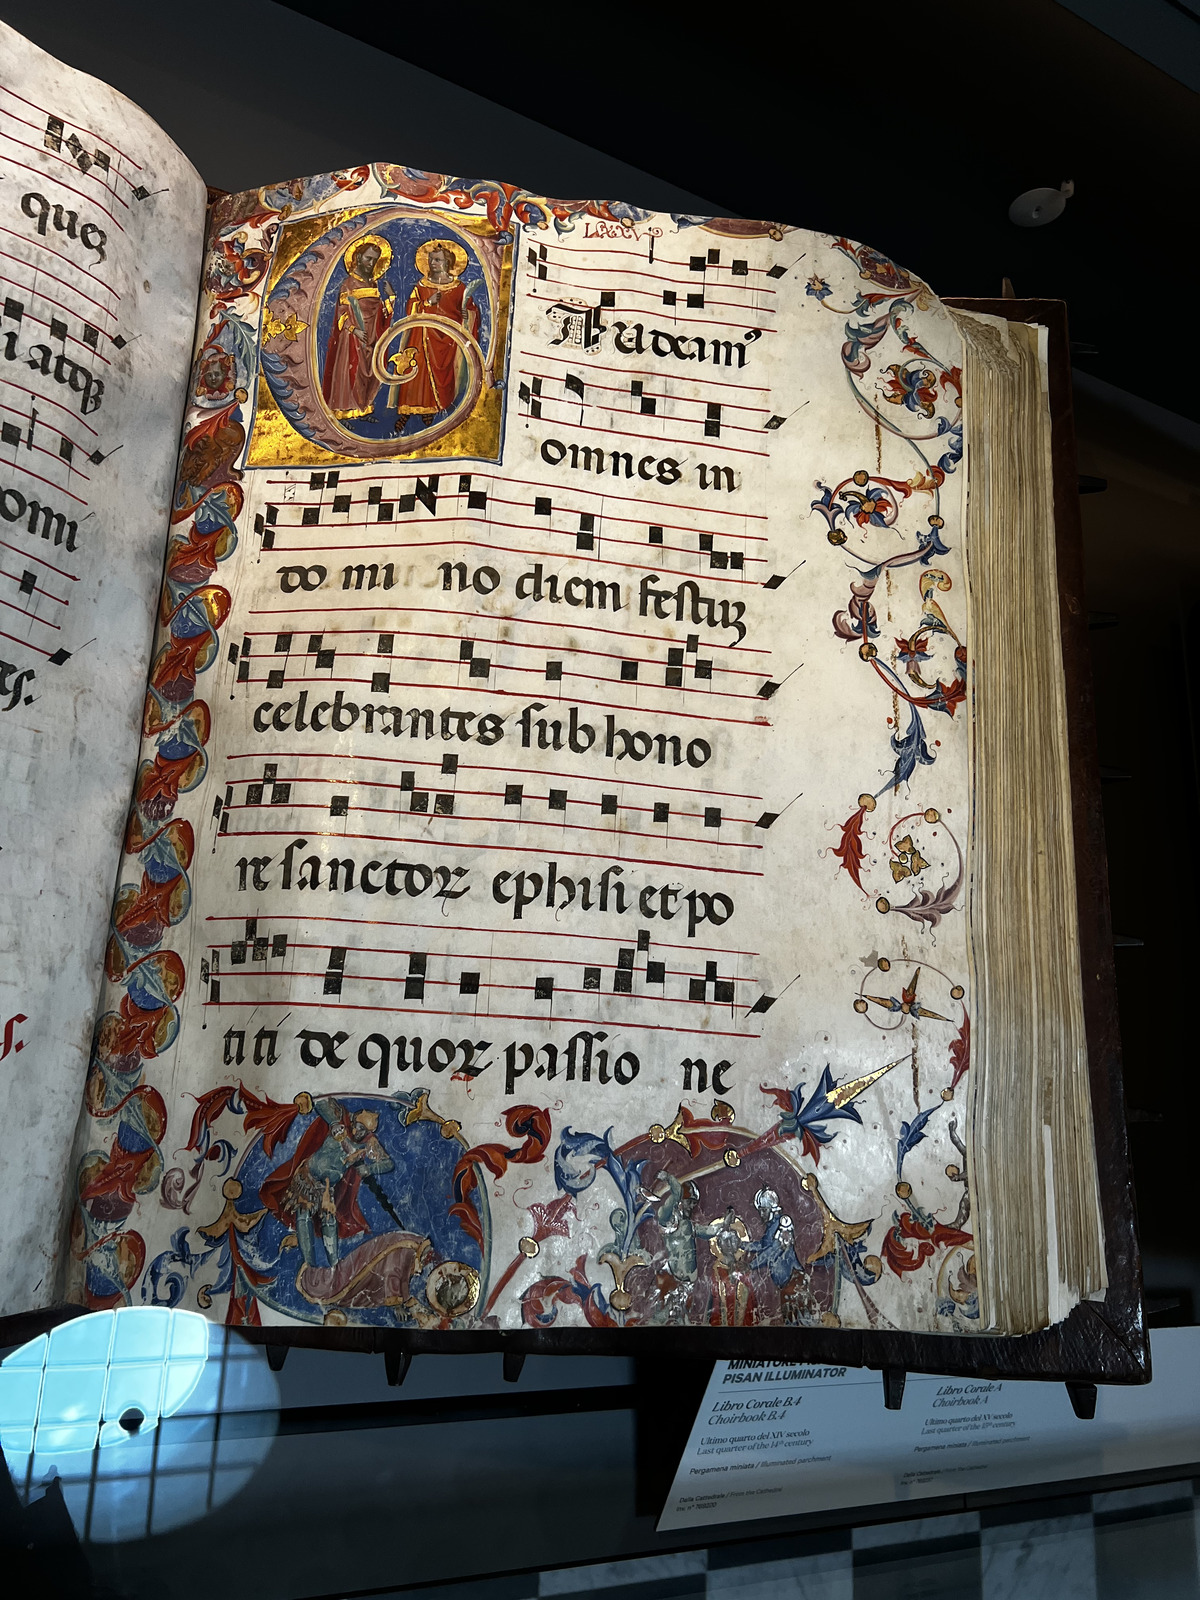 ques
iatqꝫ
omi
es.
s.
LXXXV
G Audeamꝰ
omnes in
do mi no diem festuꝫ
celebrantes sub hono
re sanctoꝝ ephisi et po
titi de quoꝝ passio ne
PISAN ILLUMINATOR
Libro Corale B.4
Choirbook B.4
Ultimo quarto del XIV secolo
Last quarter of the 14th century
Pergamena miniata / Illuminated parchment
Dalla Cattedrale / From the Cathedral
Libro Corale A
Choirbook A
Ultimo quarto del XV secolo
Last quarter of the 15th century
Pergamena miniata / Illuminated parchment
Dalla Cattedrale / From the Cathedral